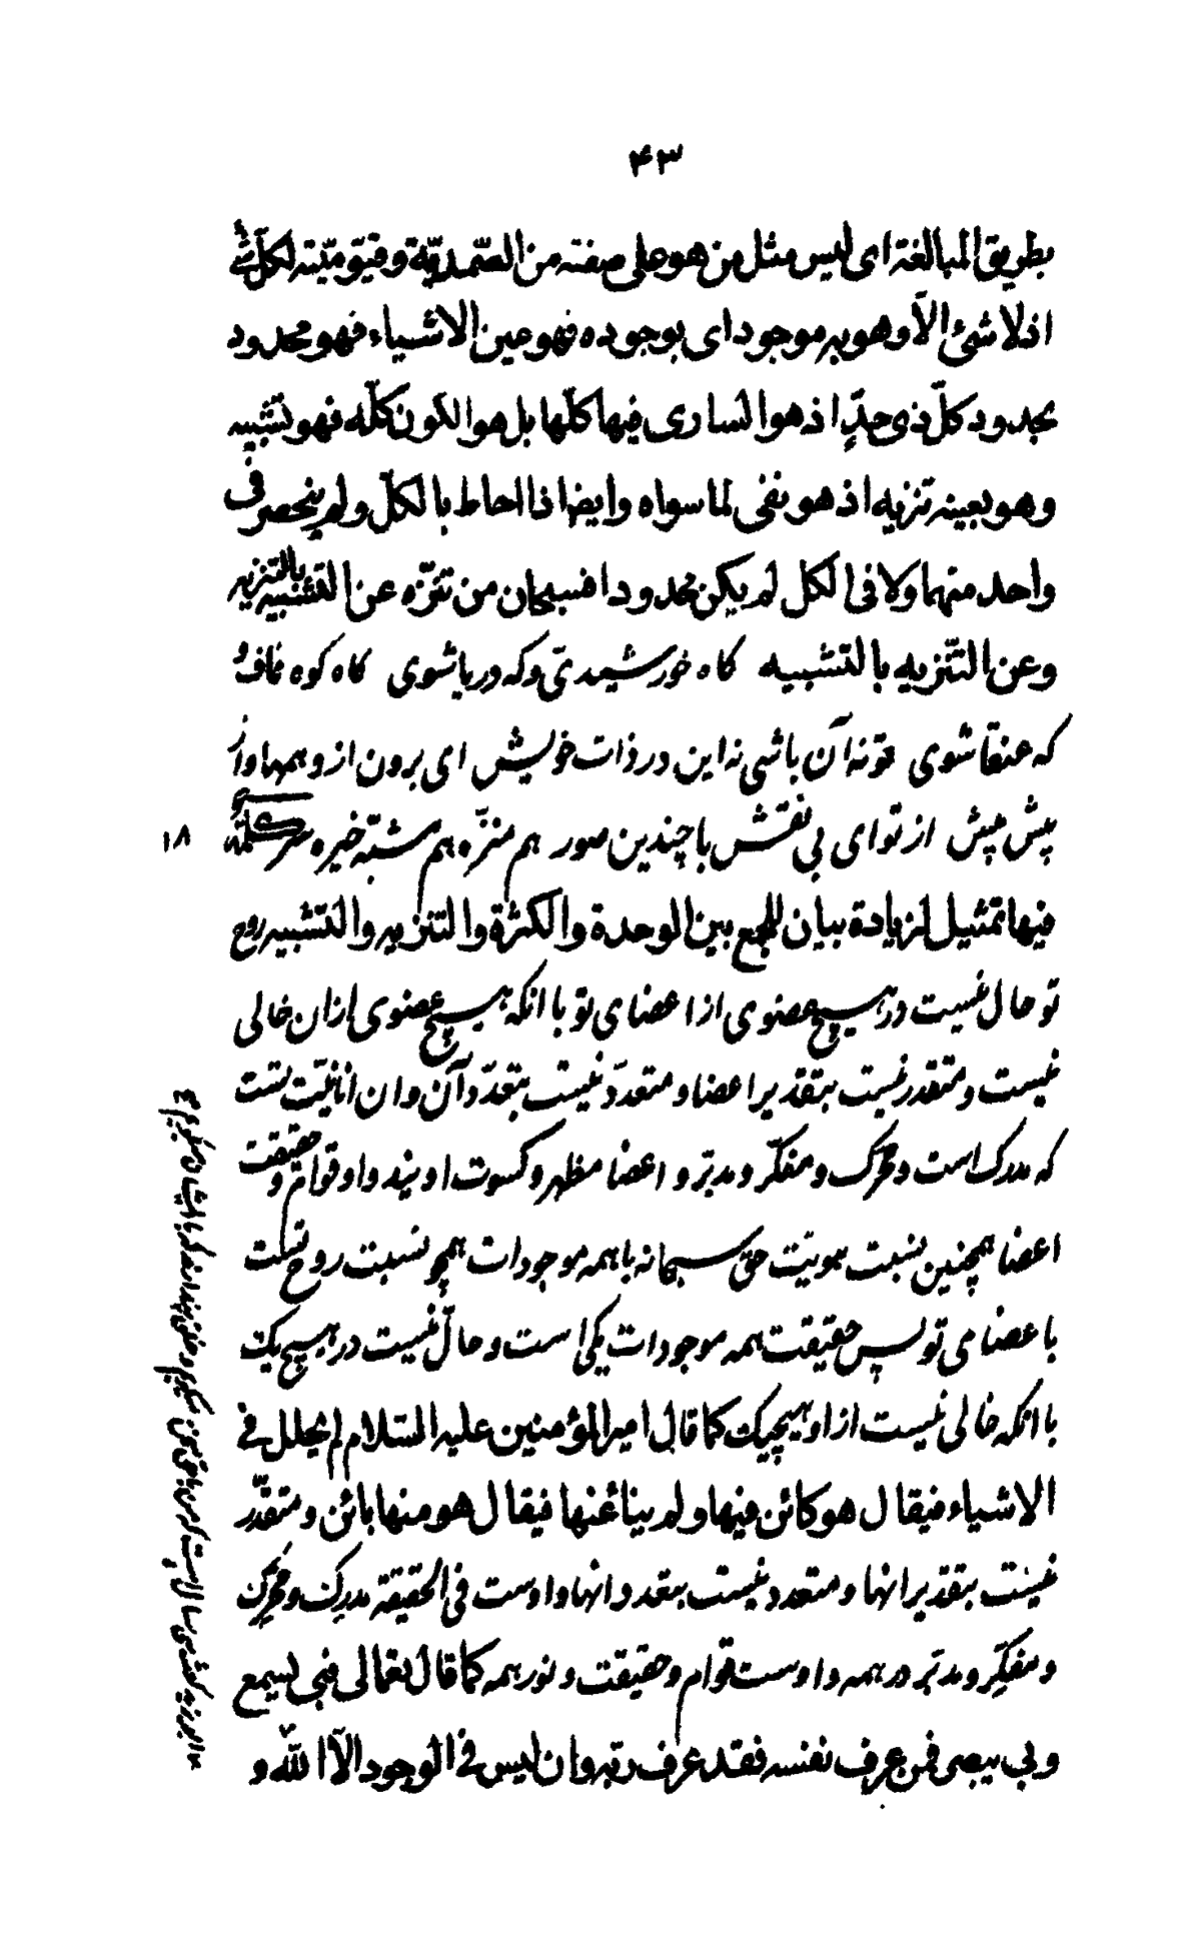 ۴۳
بطریق المبالغة ای لیس مثل من هو علی صفته من الصّمدیّة و قیّومیّته لکلّ شئ
اذ لا شئ الّا و هو به موجود ای بوجوده فهو عین الاشیاء فهو محدود
بحدود کلّ ذی حدٍّ اذ هو الساری فیها کلّها بل هو الکون کلّه فهو تشبیه
و هو بعینه تنزیه اذ هو نفی لما سواه و ایضا اذا احاط بالکلّ و لم ینحصر فی
واحد منهما و لا فی الکل لم یکن محدودا فسبحان من تنزّه عن التشبیه بالتنزیه
و عن التّنزیه بالتشبیه کاه خورشیدیّ و که دریا شوی کاه کوه قاف و
که عنقا شوی تو نه آن باشی نه این در ذات خویش ای برون از وهمها و از
پیش پیش از تو ای بی نقش با چندین صور هم منزّه هم مشبّه خیره سر کلمة
۱۸
فیها تمثیل لزیادة بیان للجمع بین الوحدة و الکثرة و التنزیه و التشبیه روح
تو حال نیست در هیچ عضوی از اعضای تو با انکه هیچ عضوی ازان خالی
نیست و متقدر نیست بتقدیر اعضا و متعدّد نیست بتعدّد آن و ان انانیّت تست
که مدرک است و محرّک و مفکّر و مدبّر و اعضا مظهر و کسوت اویند و او قوام و حقیقت
اعضا همچنین نسبت هویّت حقّ سبحانه با همه موجودات همچو نسبت روح تست
با عضای تو پس حقیقت همه موجودات یکی است و حالّ نیست در هیچ یک
با انکه خالی نیست از او هیچیک کما قال امیر المؤمنین علیه السّلام لم یحلل فی
الاشیاء فیقال هو کائن فیها و لم ینأ عنها فیقال هو منها بائن و متقدّر
نیست بتقدیر انها و متعدد نیست بتعدد انها و اوست فی الحقیقة مدرِک و محرِّک
و مفکِّر و مدبّر در همه و اوست قوام و حقیقت و نور همه کما قال تعالی فبی یسمع
و بی یبصر فمن عرف نفسه فقد عرف ربّه و ان لیس فی الوجود الّا اللّه و